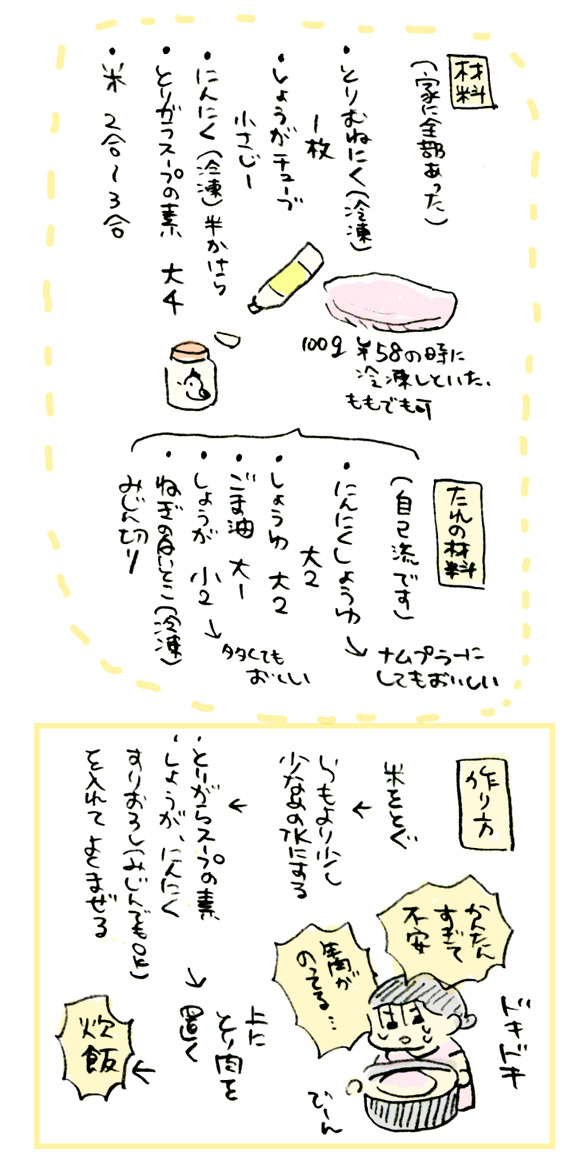 材料
(家に全部あった)
・とりむねにく(冷凍)
1枚
・しょうがチューブ
小さじ1
・にんにく(冷凍)半かけら
・とりガラスープの素 大4
・米 2合〜3合
100g ¥58の時に
冷凍しといた、
ももでも可
たれの材料
(自己流です)
・にんにくしょうゆ
大2
→ナムプラーに
してもおいしい
・しょうゆ 大2
・ごま油 大1
・しょうが 小2
→タタくても
おいしい
・ねぎの白いとこ(冷凍)
みじん切り
作り方
米をとぐ
←
いつもより少し
少なめの水にする
←
・とりがらスープの素
・しょうが、にんにく
すりおろし(みじんでもOK)
を入れてよくまぜる
→
上に
とり肉を
置く
←
炊飯
かんたん
すぎて
不安
生肉が
のってる…
ドキドキ
でーん